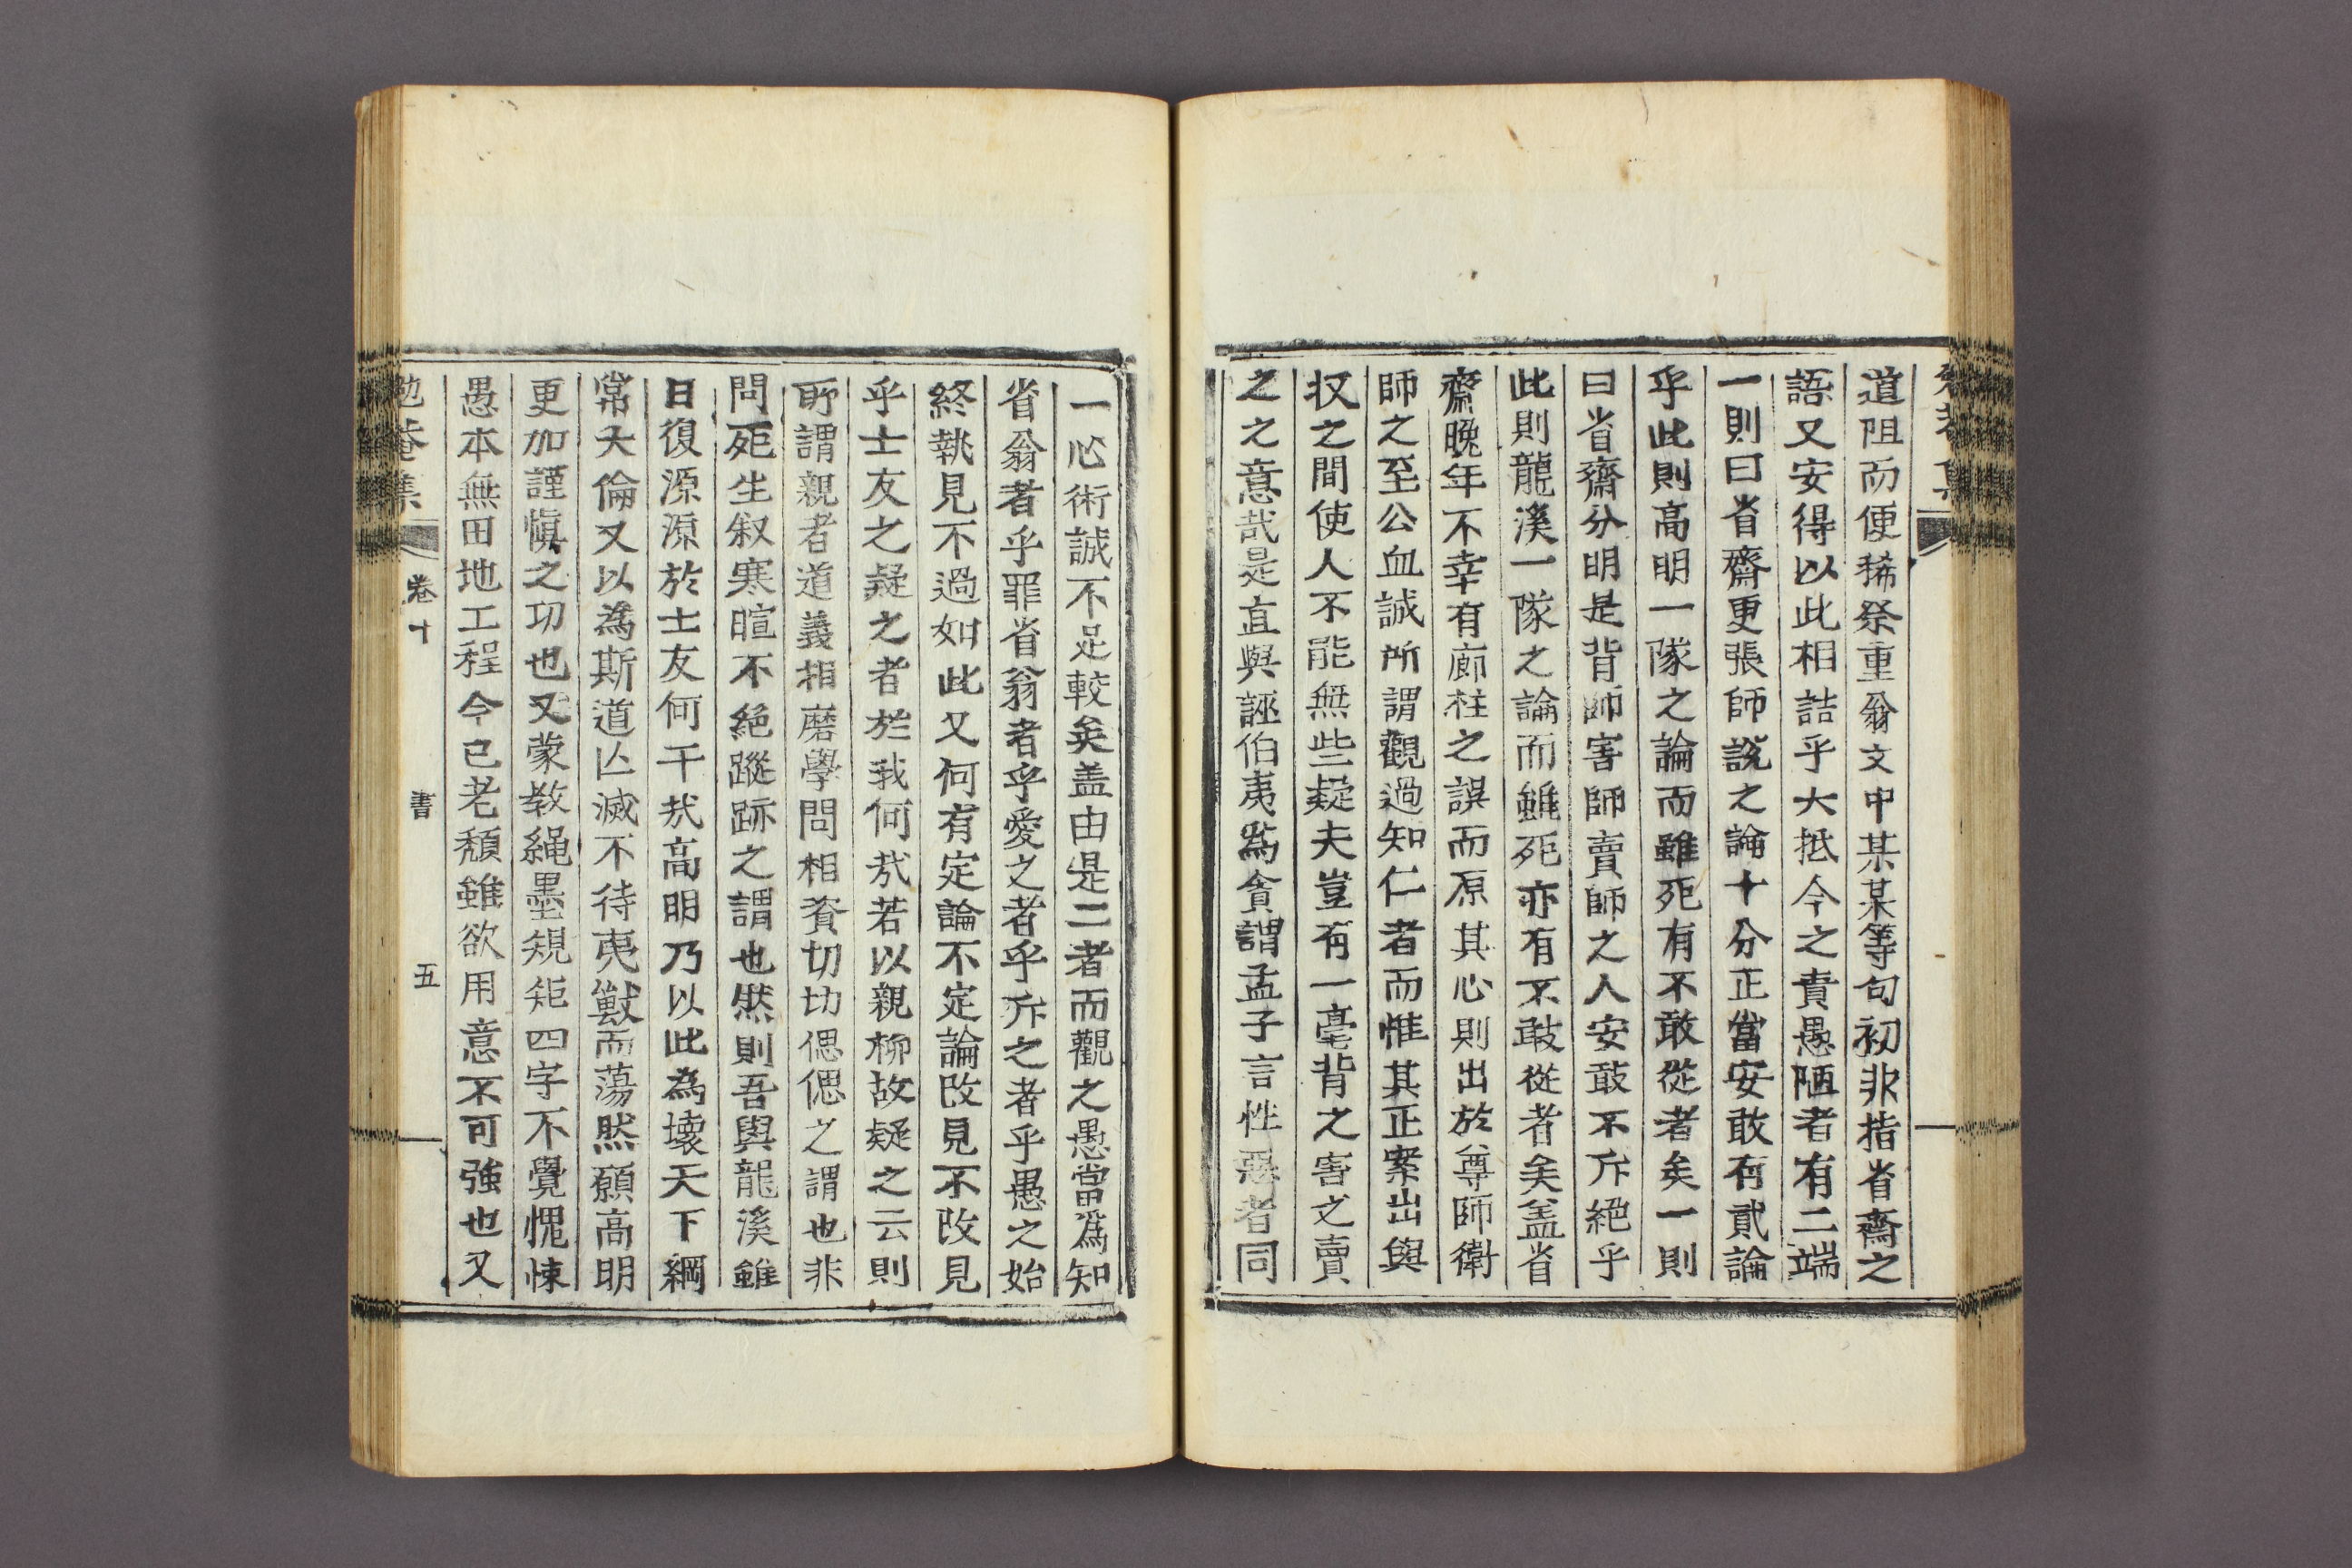 道阻而便稀祭重翁文中某某等句初非指省齋之
語又安得以此相詰乎大抵今之責愚陋者有二端
一則曰省齋更張師說之論十分正當安敢有貳論
乎此則高明一隊之論而雖死有不敢從者矣一則
曰省齋分明是背師害師賣師之人安敢不斥絕乎
此則龍溪一隊之論而雖死亦有不敢從者矣盖省
齋晚年不幸有廊柱之誤而原其心則出於尊師衛
師之至公血誠所謂觀過知仁者而惟其正案出與
収之間使人不能無些疑夫豈有一毫背之害之賣
之之意哉是直與誣伯夷爲貪謂孟子言性惡者同
一心術誠不足較矣盖由是二者而觀之愚當爲知
省翁者乎罪省翁者乎愛之者乎斥之者乎愚之始
終執見不過如此又何有定論不定論改見不改見
乎士友之疑之者於我何㢤若以親柳故疑之云則
所謂親者道義相磨學問相資切切偲偲之謂也非
問死生叙寒暄不絕蹤跡之謂也然則吾與龍溪雖
日復源源於士友何干㢤高明乃以此為壞天下綱
常大倫又以為斯道亾滅不待夷獸而蕩然願高明
更加謹愼之功也又蒙教繩墨規矩四字不覺愧悚
愚本無田地工程今已老頹雖欲用意不可強也又
勉菴集 卷十 書 五